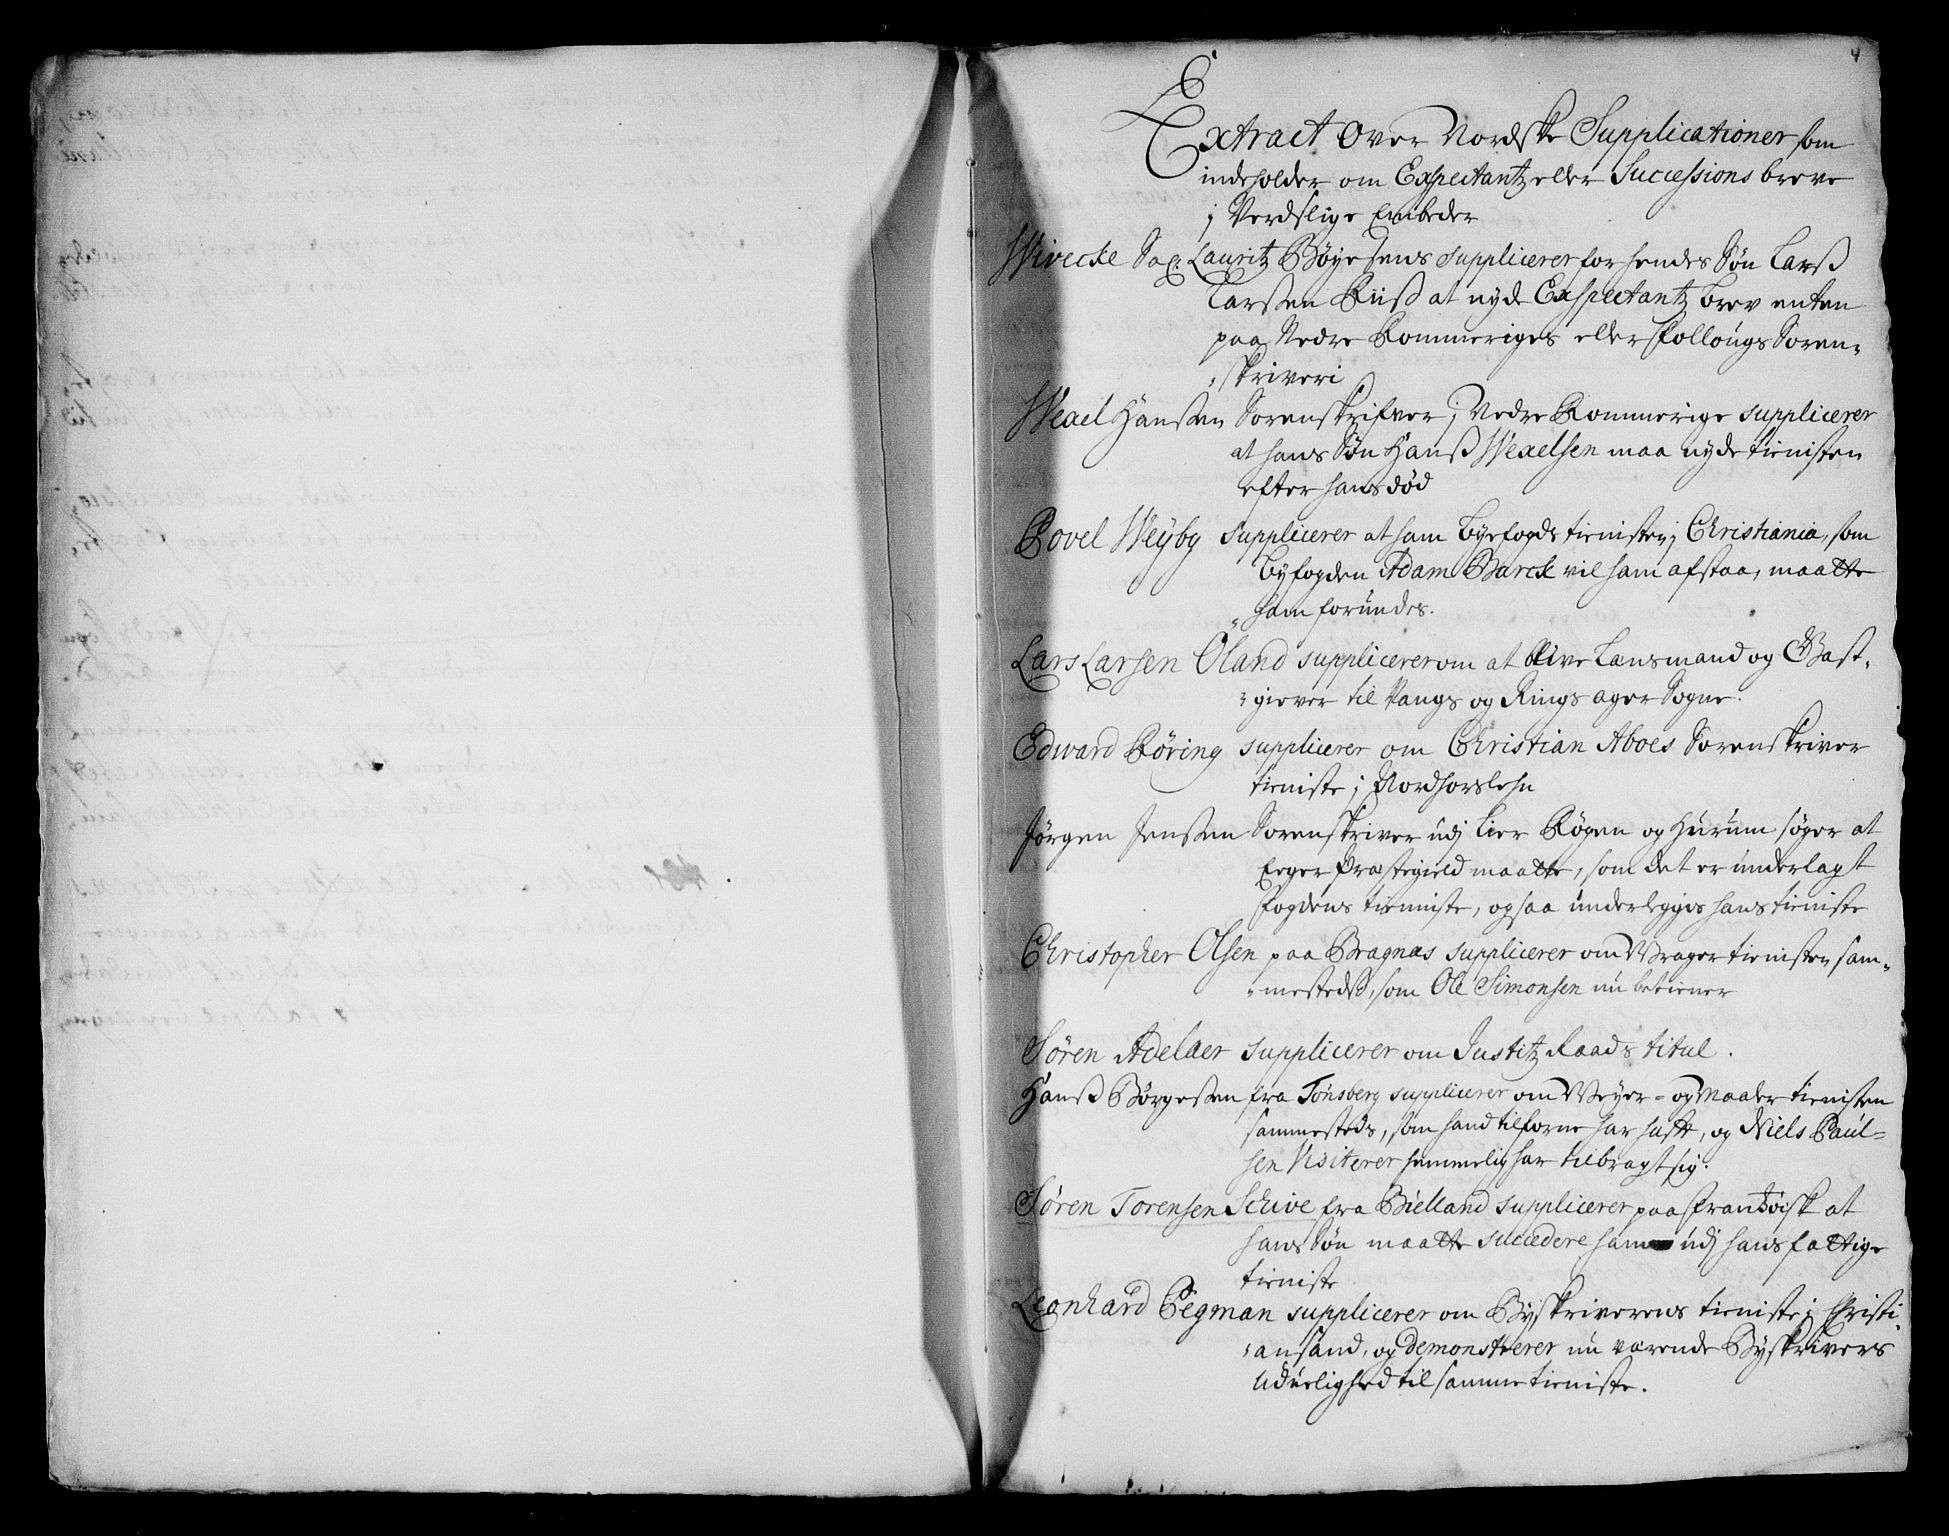 Extract Over Nordske Supplicationer som
indeholder om Exspectantz eller Successions breve
j Verdslige Embeder
Wivecke Sal: Lauritz Böyesens supplicerer for hendes Sön Larß
Larßen Riiß at nyde Exspectantz brev enten
paa Nedre Rommeriges eller Follougs Soren-
skriveri
Wexel Hanßen Sorenskrifver j Nedre Rommerige supplicerer
at hans Sön Hanß Wexelsen maa nyde tienisten
efter hans död
Povel Weyby supplicerer at ham byefogds tienisten j Christiania, som
byfogden Adam Barck vil ham afstaa, maatte
ham forundes.
Lars Larsen Oland supplicerer om at blive Lænsmand og Gæst-
giever til Vangs og Rings ager Sogne.
Edward Röring supplicerer om Christian Aboes Sorenskriver
tieniste j Nordhorslehn
Jörgen Jenßen Sorenskriver udj Lier Rögen og Hurum söger at
Eeger Præstegield maatte, som det er underlagt
fogdens tienniste, ogsaa underlegges hans tieniste
Christopher Olsen paa Bragnæs supplicerer om Vrager tienisten sam-
mesteds, som Ole Simonsen nu betiener
Sören Adelaer supplicerer om Justitz Raads titul.
Hanß Börgeßen fra Tönsberg supplicerer om Veyer- og Maaler tienisten
sammesteds, som hand tilforne har hafft, og Niels Paul-
sen Visiterer hemmelig har tilbragt sig.
Sören Torensen Schive fra Bielland supplicerer paa Frantzöisk at
hans Sön maatte succedere ham udj hans fattige
tieniste
Leonhard Pegman supplicerer om Byskriverens tieniste j Christi-
ansand, og demonstrerer nu værende Byskrivers
Uduelighed til samme tieniste.